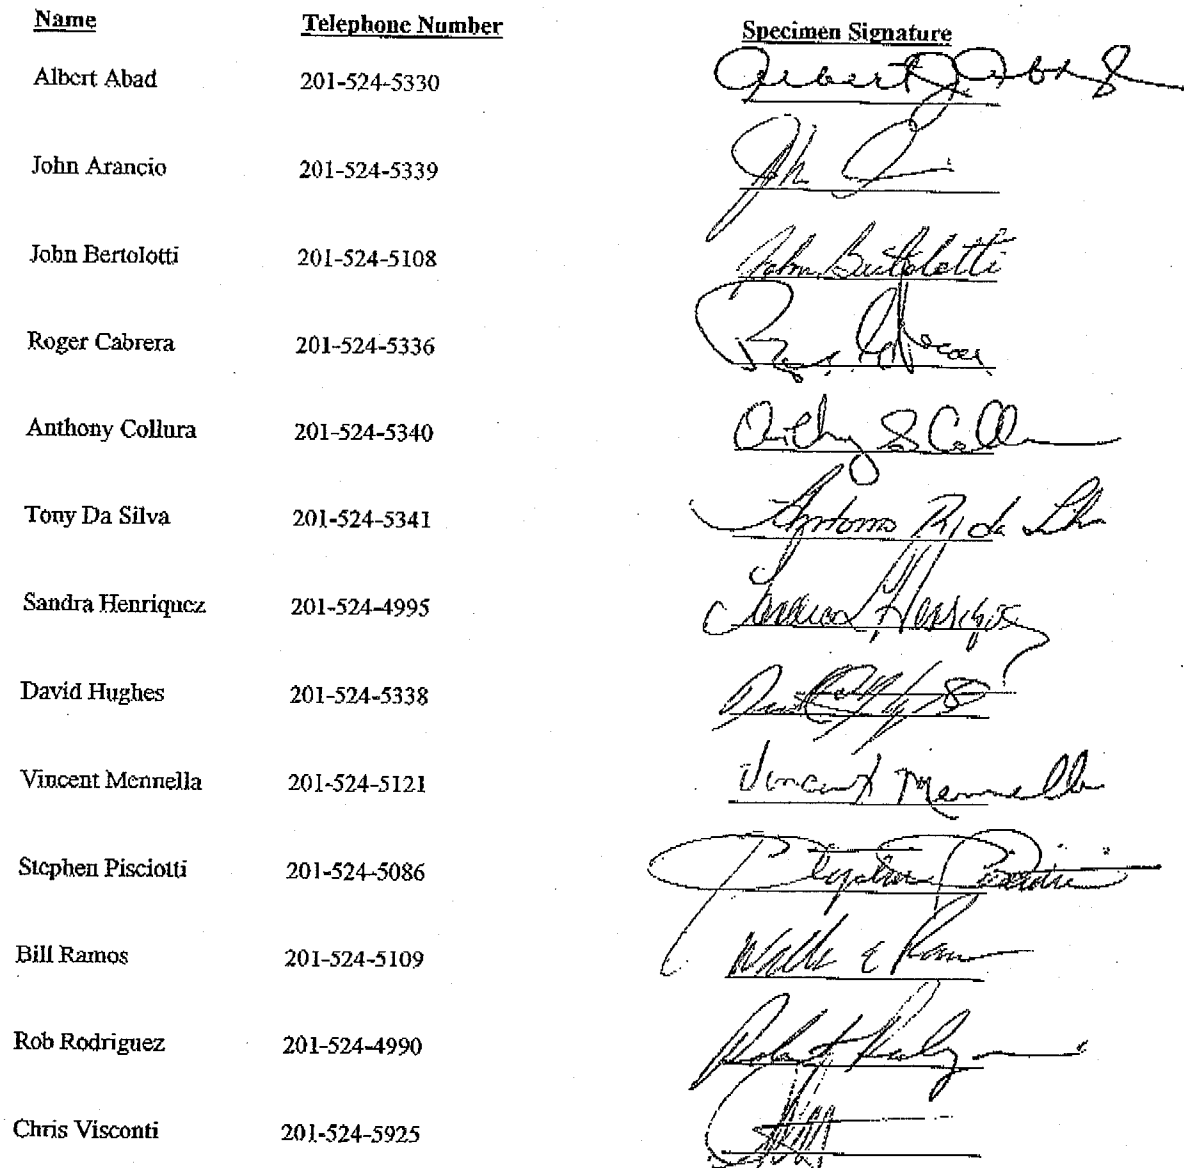 Name Telephone Number Specimen Signature
Albert Abad 201-524-5330 Albert J. Abad
John Arancio 201-524-5339
John Bertolotti 201-524-5108 John Bertolotti
Roger Cabrera 201-524-5336
Anthony Collura 201-524-5340 S Coll
Tony Da Silva 201-524-5341 Antonio R. da
Sandra Henriquez 201-524-4995
David Hughes 201-524-5338
Vincent Mennella 201-524-5121 Vincent Mennella
Stephen Pisciotti 201-524-5086 Stephen
Bill Ramos 201-524-5109
Rob Rodriguez 201-524-4990 Robert
Chris Visconti 201-524-5925